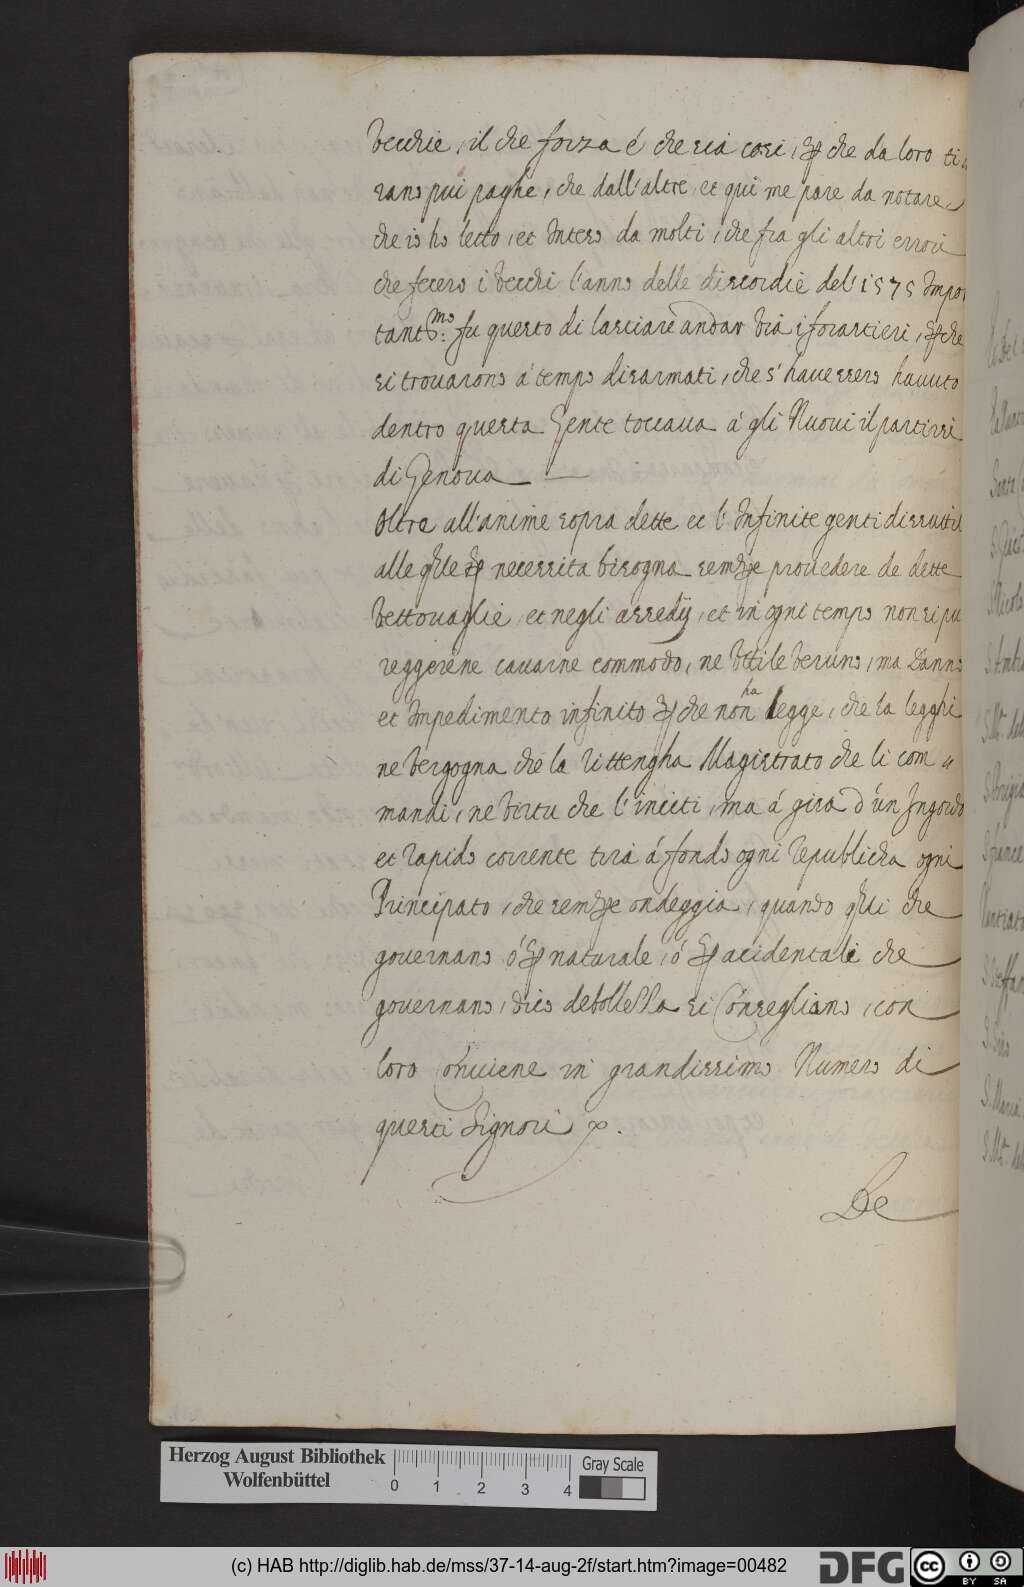 vecchie, il che forza é che sia cosi, et che da loro ti
rano piu paghe, che dall'altre, et qui me pare da notare
che io ho letto, et Inteso da molti, che fra gli altri errori
che fecero i vecchi l'anno delle discordie del' 1575 Impor
tantmo: fu questo di lasciare andar via i forastieri, et che
si trouarono á tempo disarmati, che s' hauessero hauuto
dentro questa Gente toccaua á gli Nuoui il partirsi
di Genoua
Oltre all'anime sopra dette et l' Infinite genti disutili
alle qli per necessita bisogna sempre prouedere de dette
vettouaglie, et negli assedij, et in ogni tempo non si pu
reggerene cauarne commodo, ne vtile veruno, ma Danno
et Impedimento infinito per che non ha legge, che la legghi
ne vergogna che la rittengha Magistrato che li com
mandi, ne virtu che l' inciti, ma á gisa d'un Ingordo
et rapido corrente tira á fondo ogni republicha ogni
Principato, che sempre ondeggia, quando qlli che
gouernano ó per naturale, ó per acidentale che
gouernano, dico debollezza si Consegliano, con
loro Conuiene in grandissimo Numero di
questi Signori
De
Herzog August Bibliothek
Wolfenbüttel
0 1 2 3 4
Gray Scale
(c) HAB http://diglib.hab.de/mss/37-14-aug-2f/start.htm?image=00482
DFG
cc BY SA